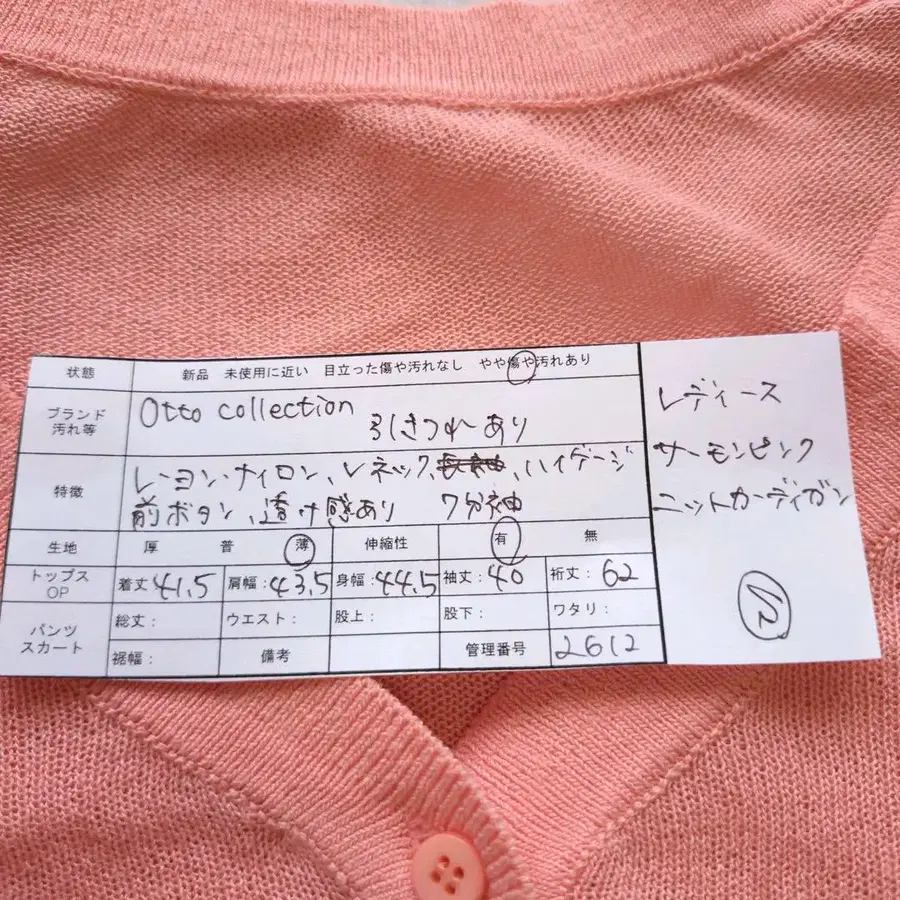 状態 新品 未使用に近い 目立った傷や汚れなし やや傷や汚れあり
ブランド
汚れ等
Otto collection
引きつれあり
特徴
レーヨン・ナイロン、Vネック、長袖、ハイゲージ
前ボタン、透け感あり 7分袖
生地 厚 普 薄 伸縮性 有 無
トップス
OP
着丈41.5 肩幅:43.5 身幅:44.5 袖丈:40 裄丈:62
パンツ
スカート
総丈: ウエスト: 股上: 股下: ワタリ:
裾幅: 備考 管理番号 2612
レディース
サーモンピンク
ニットカーディガン